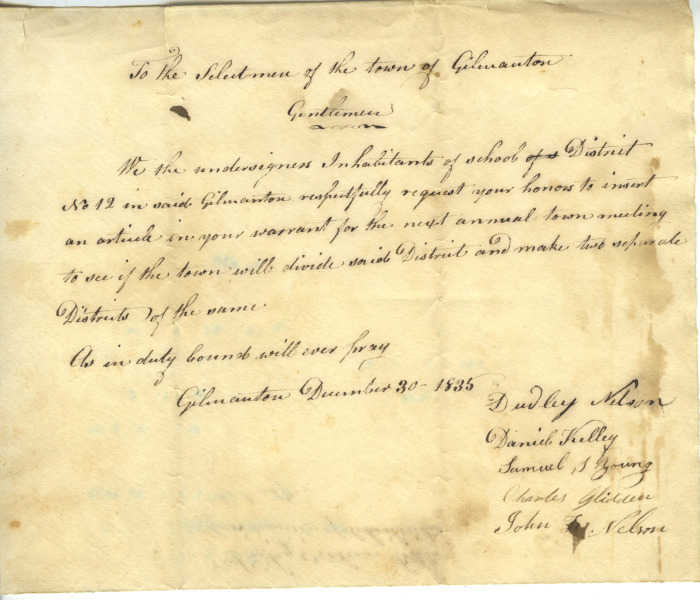 To the Selectmen of the town of Gilmanton
Gentlemen
We the undersigners Inhabitants of school of s District
No 12 in said Gilmanton respectfully request your honors to insert
an article in your warrant for the next annual town meeting
to see if the town will divide said District and make two separate
Districts of the same
As in duty bound will ever pray
Gilmanton December 30 - 1835
Dudley Nelson
Daniel Kelley
Samuel S Young
Charles Glidden
John Nelson